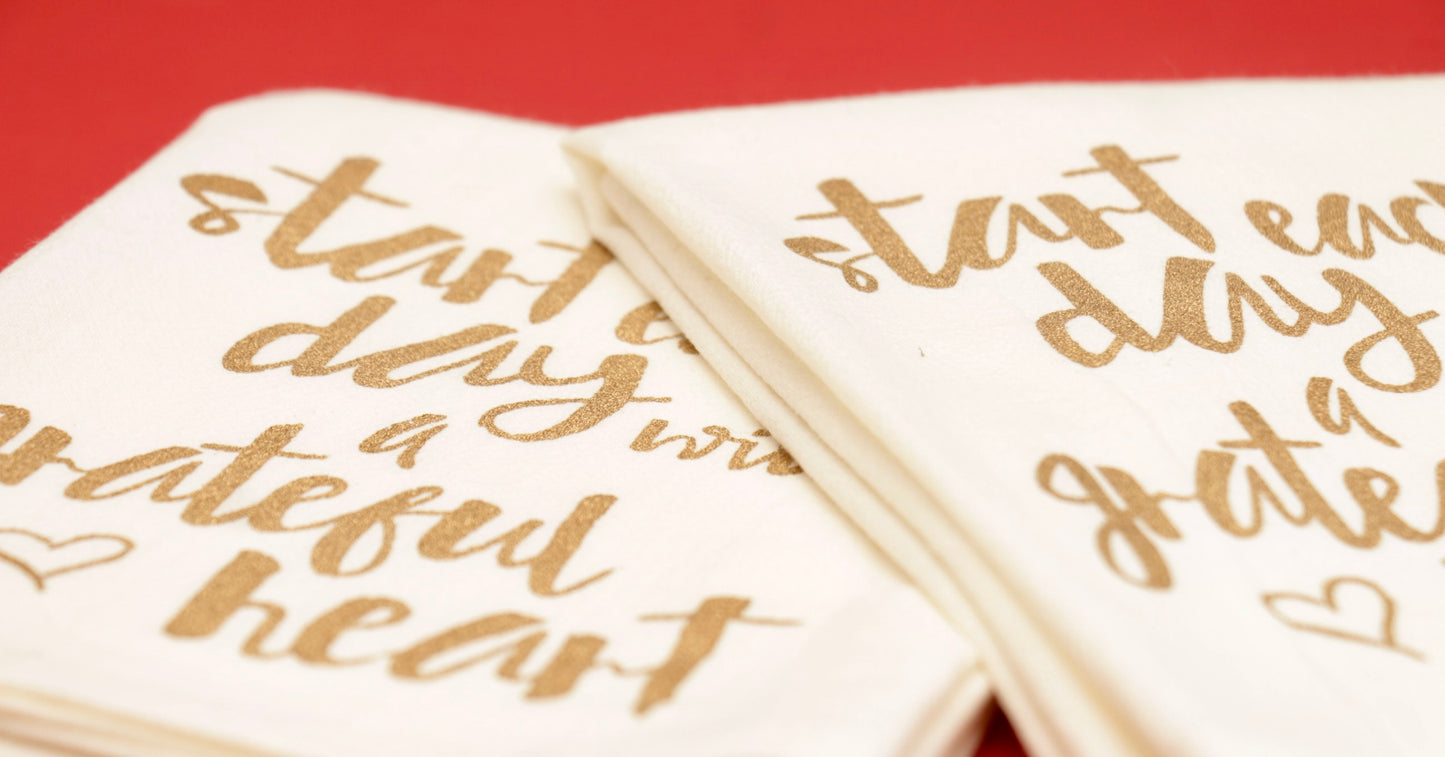 start e
day wi
a
grateful
heart
start each
day
a
grate